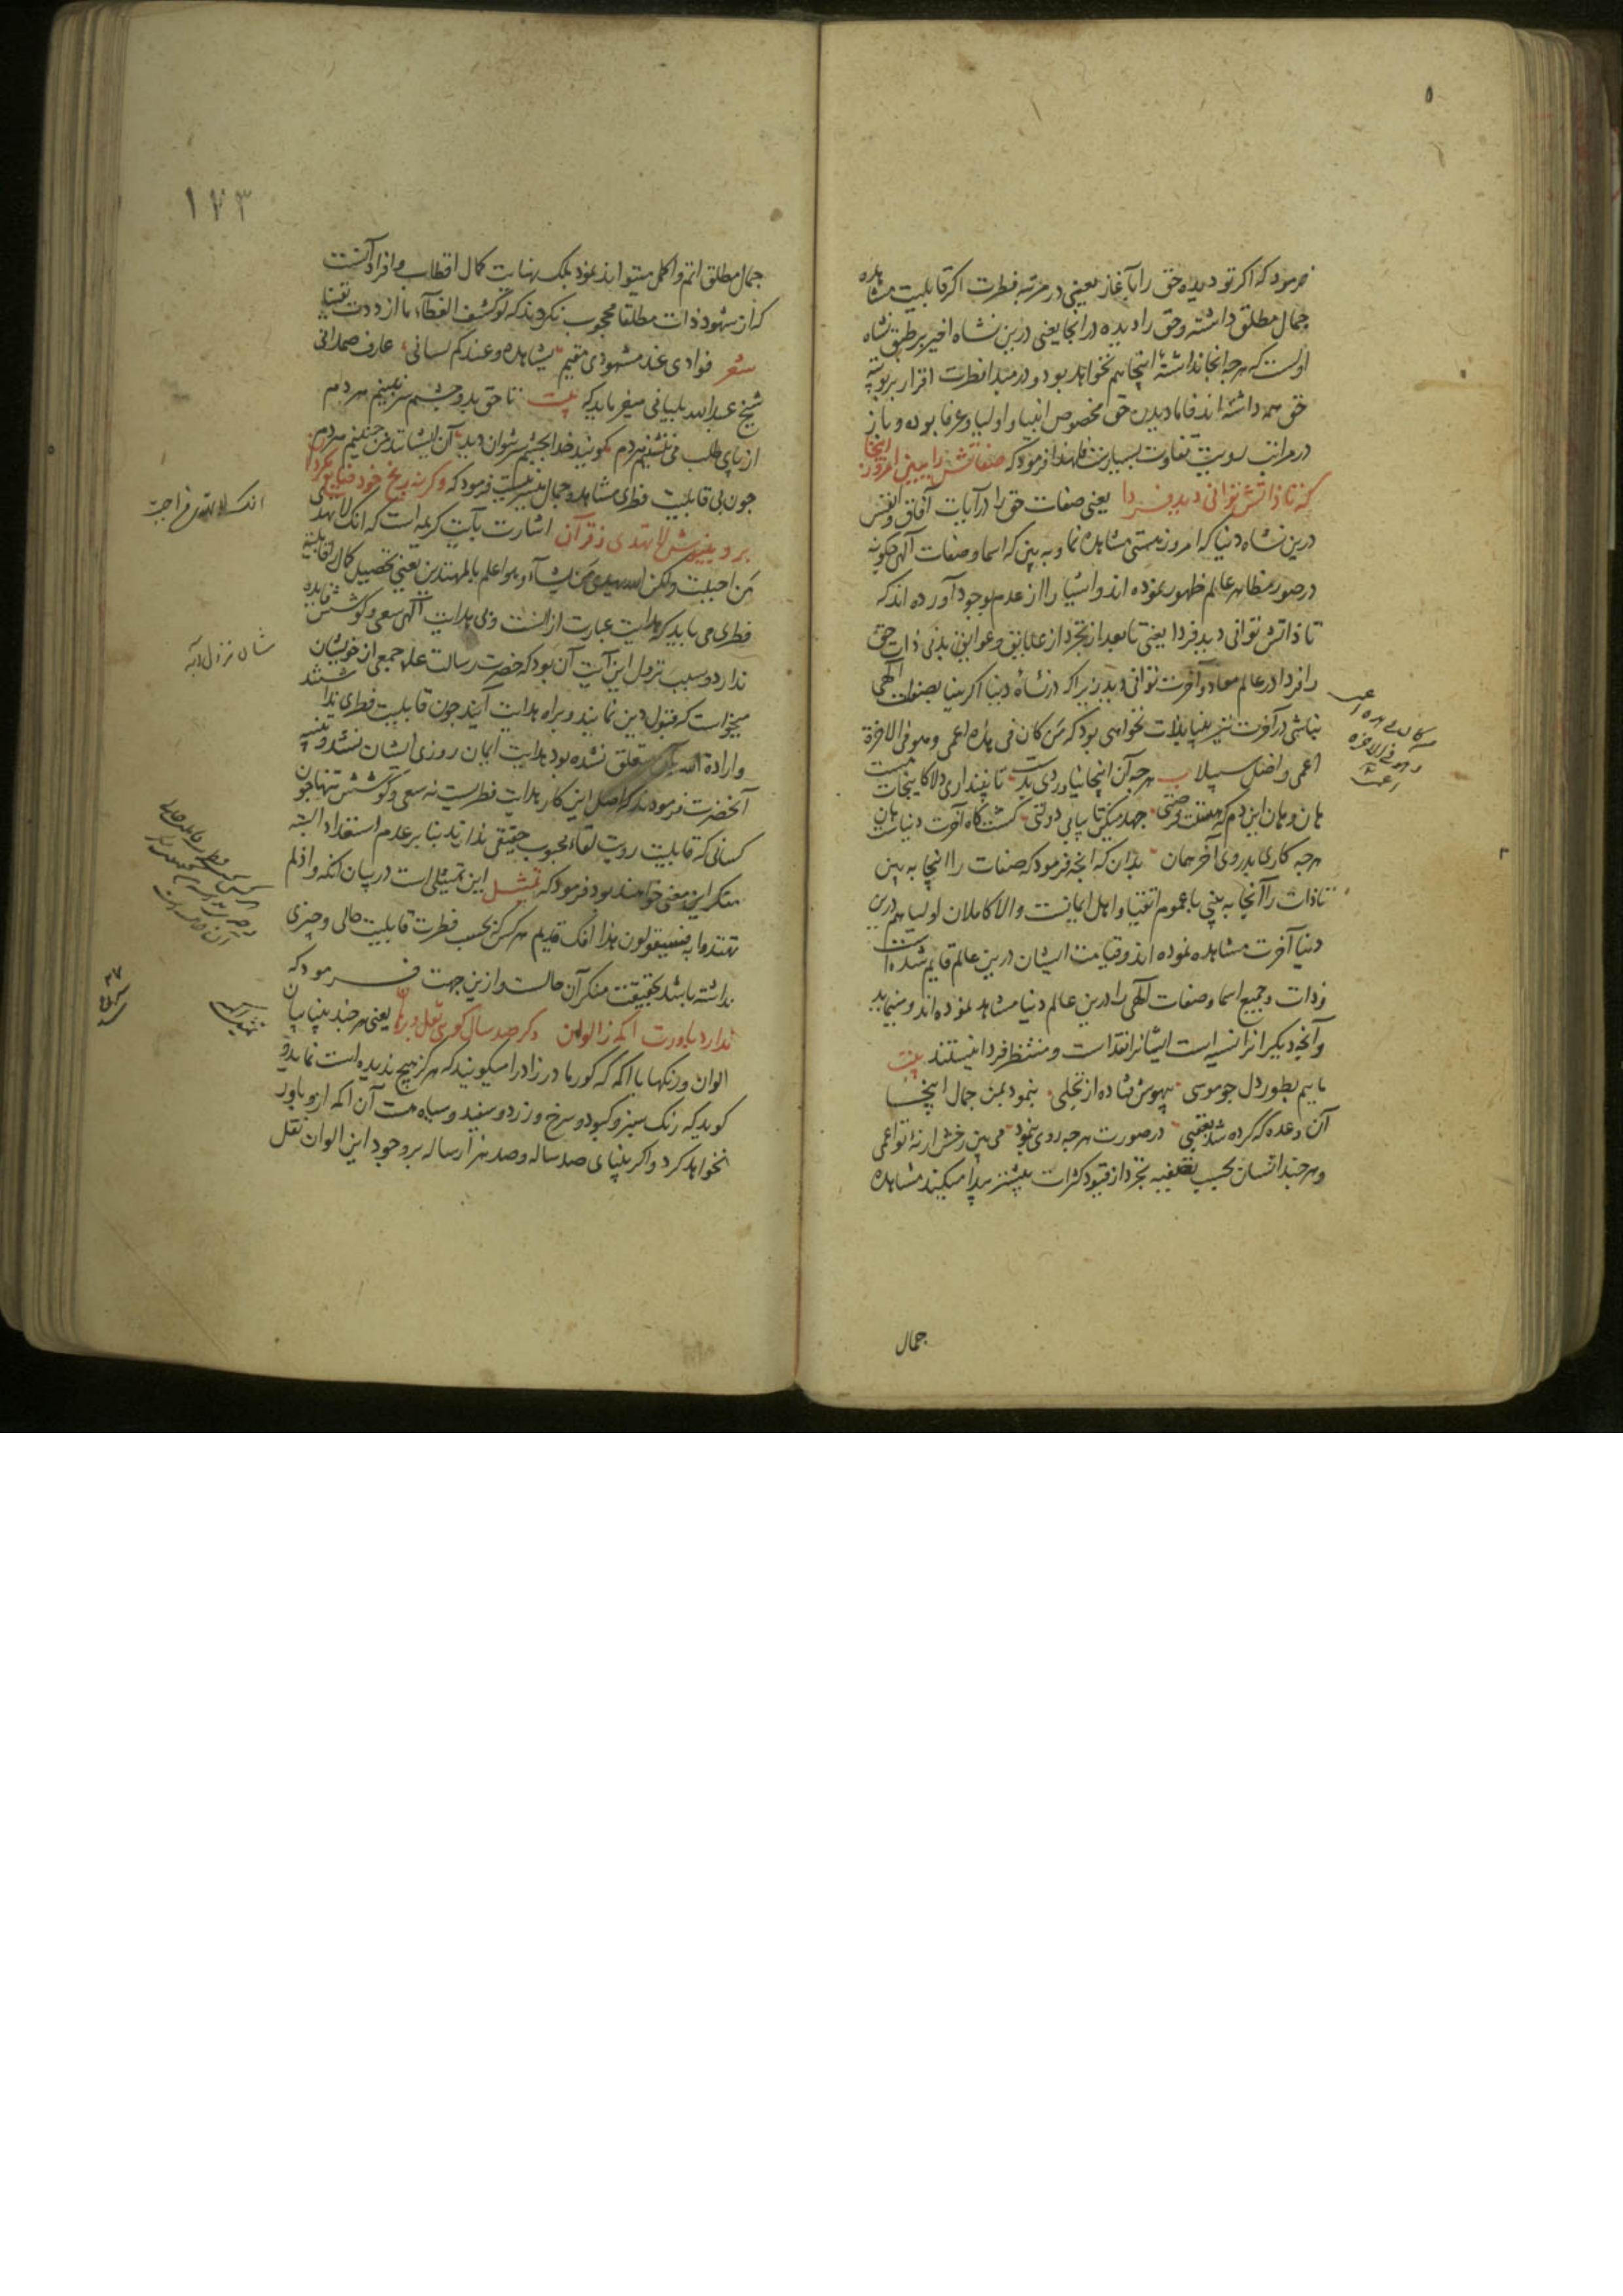 فرمود که اکر تو دیده حق را بآغاز یعنی در مرتبه فطرت اکر قابلیت مشاهده
جمال مطلق داشته و حق را دیده در انجا یعنی درین نشاه اخیر بر طبق نشاه
اولست که هرچه انجا نداشتهٔ اینجا هم نخواهد بود و در مبدا فطرت اقرار بربوبیه
حق همه داشته اند فاما دیدن حق مخصوص انبیا و اولیا و عرفا بوده و باز
در مراتب رویت تفاوت بسیارست فلهذا فرمود که صفاتش را ببین امروز اینجا
که تا ذاتش توانی دید فردا یعنی صفات حق را در آیات آفاق و انفس
درین نشاه دنیا که امروز هستی مشاهده نما و به بین که اسما و صفات آلهی چکونه
در صور مظاهر عالم ظهور نموده اند و اشیا را از عدم بوجود آورده اند که
تا ذاتش توانی دید فردا یعنی تا بعد از تجرد از علایق و عوایق بدنی ذات حق
را فردا در عالم معاد و آخرت توانی دید زیرا که در نشاهٔ دنیا اکر بینا بصفات آلهی
نباشی در آخرت نیز بینا بذات نخواهی بود که من کان فی هذه اعمی و هو فی الاخرة
اعمی و اضل سبیلا هرچه آن اینجا نیاوردی بدست تا نپنداری دلا کاینجات هست
هان و هان این دم که هستت فرصتی جهد میکن تا بیابی دولتی کشت کاه آخرت دنیاست هان
هرچه کاری بدروی آخر همان بدان که انچه فرمود که صفات را اینجا به بین
تا ذات را آنجا به بینی با عموم اتقیا و اهل ایمانیست والا کاملان اولیا هم درین
دنیا آخرت مشاهده نموده اند و قیامت ایشان درین عالم قایم شده است
و ذات و جمیع اسما و صفات آلهی را درین عالم دنیا مشاهده نموده اند و مینمایند
و آنچه دیکر انرا نسیه است ایشانرا نقد است و منتظر فردا نیستند بیت
ماییم بطور دل چو موسی بیهوش فتاده از تجلی بنمود بمن جمال اینجا
آن وعده که کرده شد بعقبی در صورت هرچه روی بنمود می بین رخش ار نهٔ تو اعمی
و هر چند انسان بحسب تصفیه تجرد از قیود کثرات بیشتر پیدا میکند مشاهده
جمال
۱۷۳
جمال مطلق اتم و اکمل میتواند نمود بلک نهایت کمال اقطاب و افراد آنست
که از شهود ذات مطلقا محجوب نکردند که لو کشف الغطآء ما ازددت یقینا
شعر فوادی عند مشهودی مقیم یشاهده و عندکم لسانی عارف صمدانی
شیخ عبدالله بلیانی میفرماید که بیت تا حق بدو چشم سر نبینم هر دم
از پای طلب می ننشینم هر دم کویند خدا بچشم سر نتوان دید آن ایشانند من چنینم هر دم
چون بی قابلیت فطری مشاهده جمال میسر نیست فرمود که وکرنه رنج خود ضایع مکردان
برو بنیوش لا تهدی ز قرآن اشارت بآیت کریمه است که انک لا تهدی
من احببت ولکن الله یهدی من یشآء و هو اعلم بالمهتدین یعنی تحصیل کمال را قابلیة
فطری می باید که هدایت عبارت از انست و بی هدایت آلهی سعی و کوشش فایده
ندارد و سبب نزول این آیت آن بود که حضرت رسالت علیه جمعی از خویشان
میخواست که قبول دین نمایند و براه هدایت آیند چون قابلیت فطری نداشتند
و ارادة الله بآن متعلق نشده بود هدایت ایمان روزی ایشان نشد و تنبیه
آنحضرت فرمودند که اصل این کار هدایت فطریست نه سعی و کوشش تنها چون
کسانی که قابلیت رویت لقاء محبوب حقیقی ندارند بنا بر عدم استعداد البته
منکر این معنی خواهند بود فرمود که تمثیل این تمثیلی است در بیان انکه و اذ لم
تهتدوا به فسیقولون هذا افک قدیم هر کس که بحسب فطرت قابلیت حالی و چیزی
نداشته باشد بحقیقت منکر آن حالست و ازین جهت فرمود که
ندارد باورت اکمه ز الوان وکر صد سال کویی نقل و برهان یعنی هر چند بینایان
الوان و رنکها با اکمه که کور مادرزاد را میکویند که هرکز هیچ ندیده است نمایند و
کوید که رنک سبز و کبود و سرخ و زرد و سفید و سیاه هست آن اکمه ازو باور
نخواهد کرد و اکر بینای صد ساله و صد هزار ساله بر وجود این الوان نقل
انک لا تهدی من احببت
شان نزول آیه